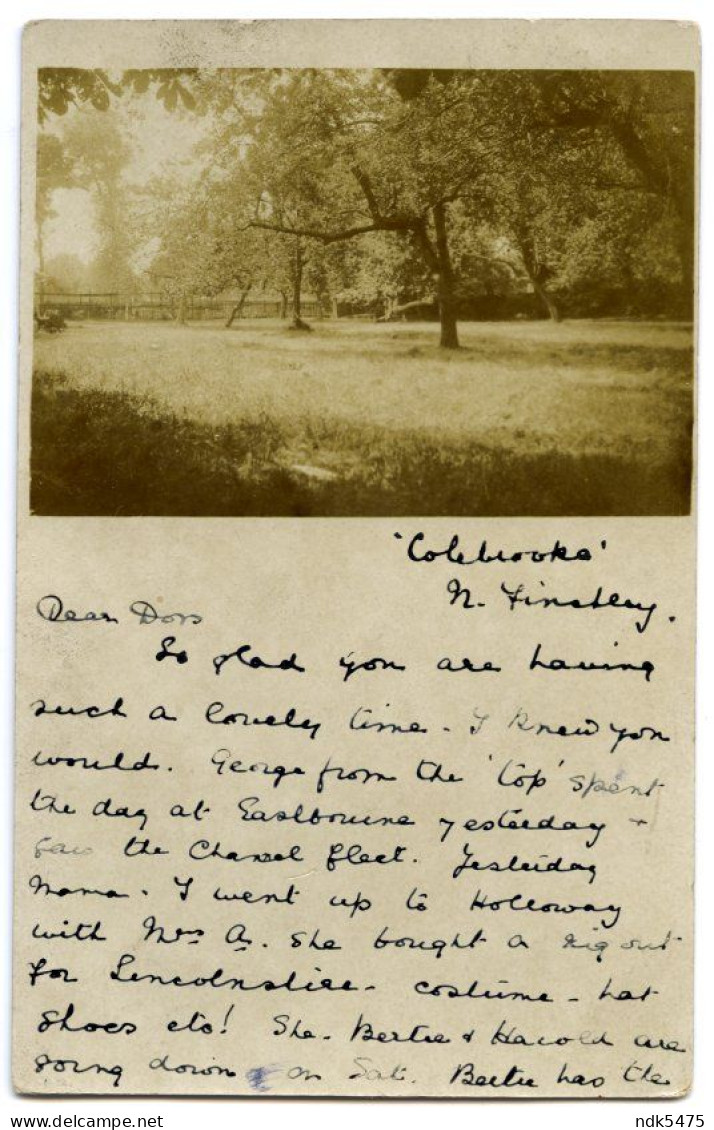 'Colebrooke'
N. Finchley.
Dear Dors
So glad you are having
such a lovely time - I knew you
would. George from the 'top' spent
the day at Eastbourne yesterday +
saw the Channel fleet. Yesterday
Mama - I went up to Holloway
with Mrs A. She bought a rig out
for Lincolnshire - costume - hat
shoes etc! She - Bertie & Harold are
going down on Sat. Bertie has the
ndk5475